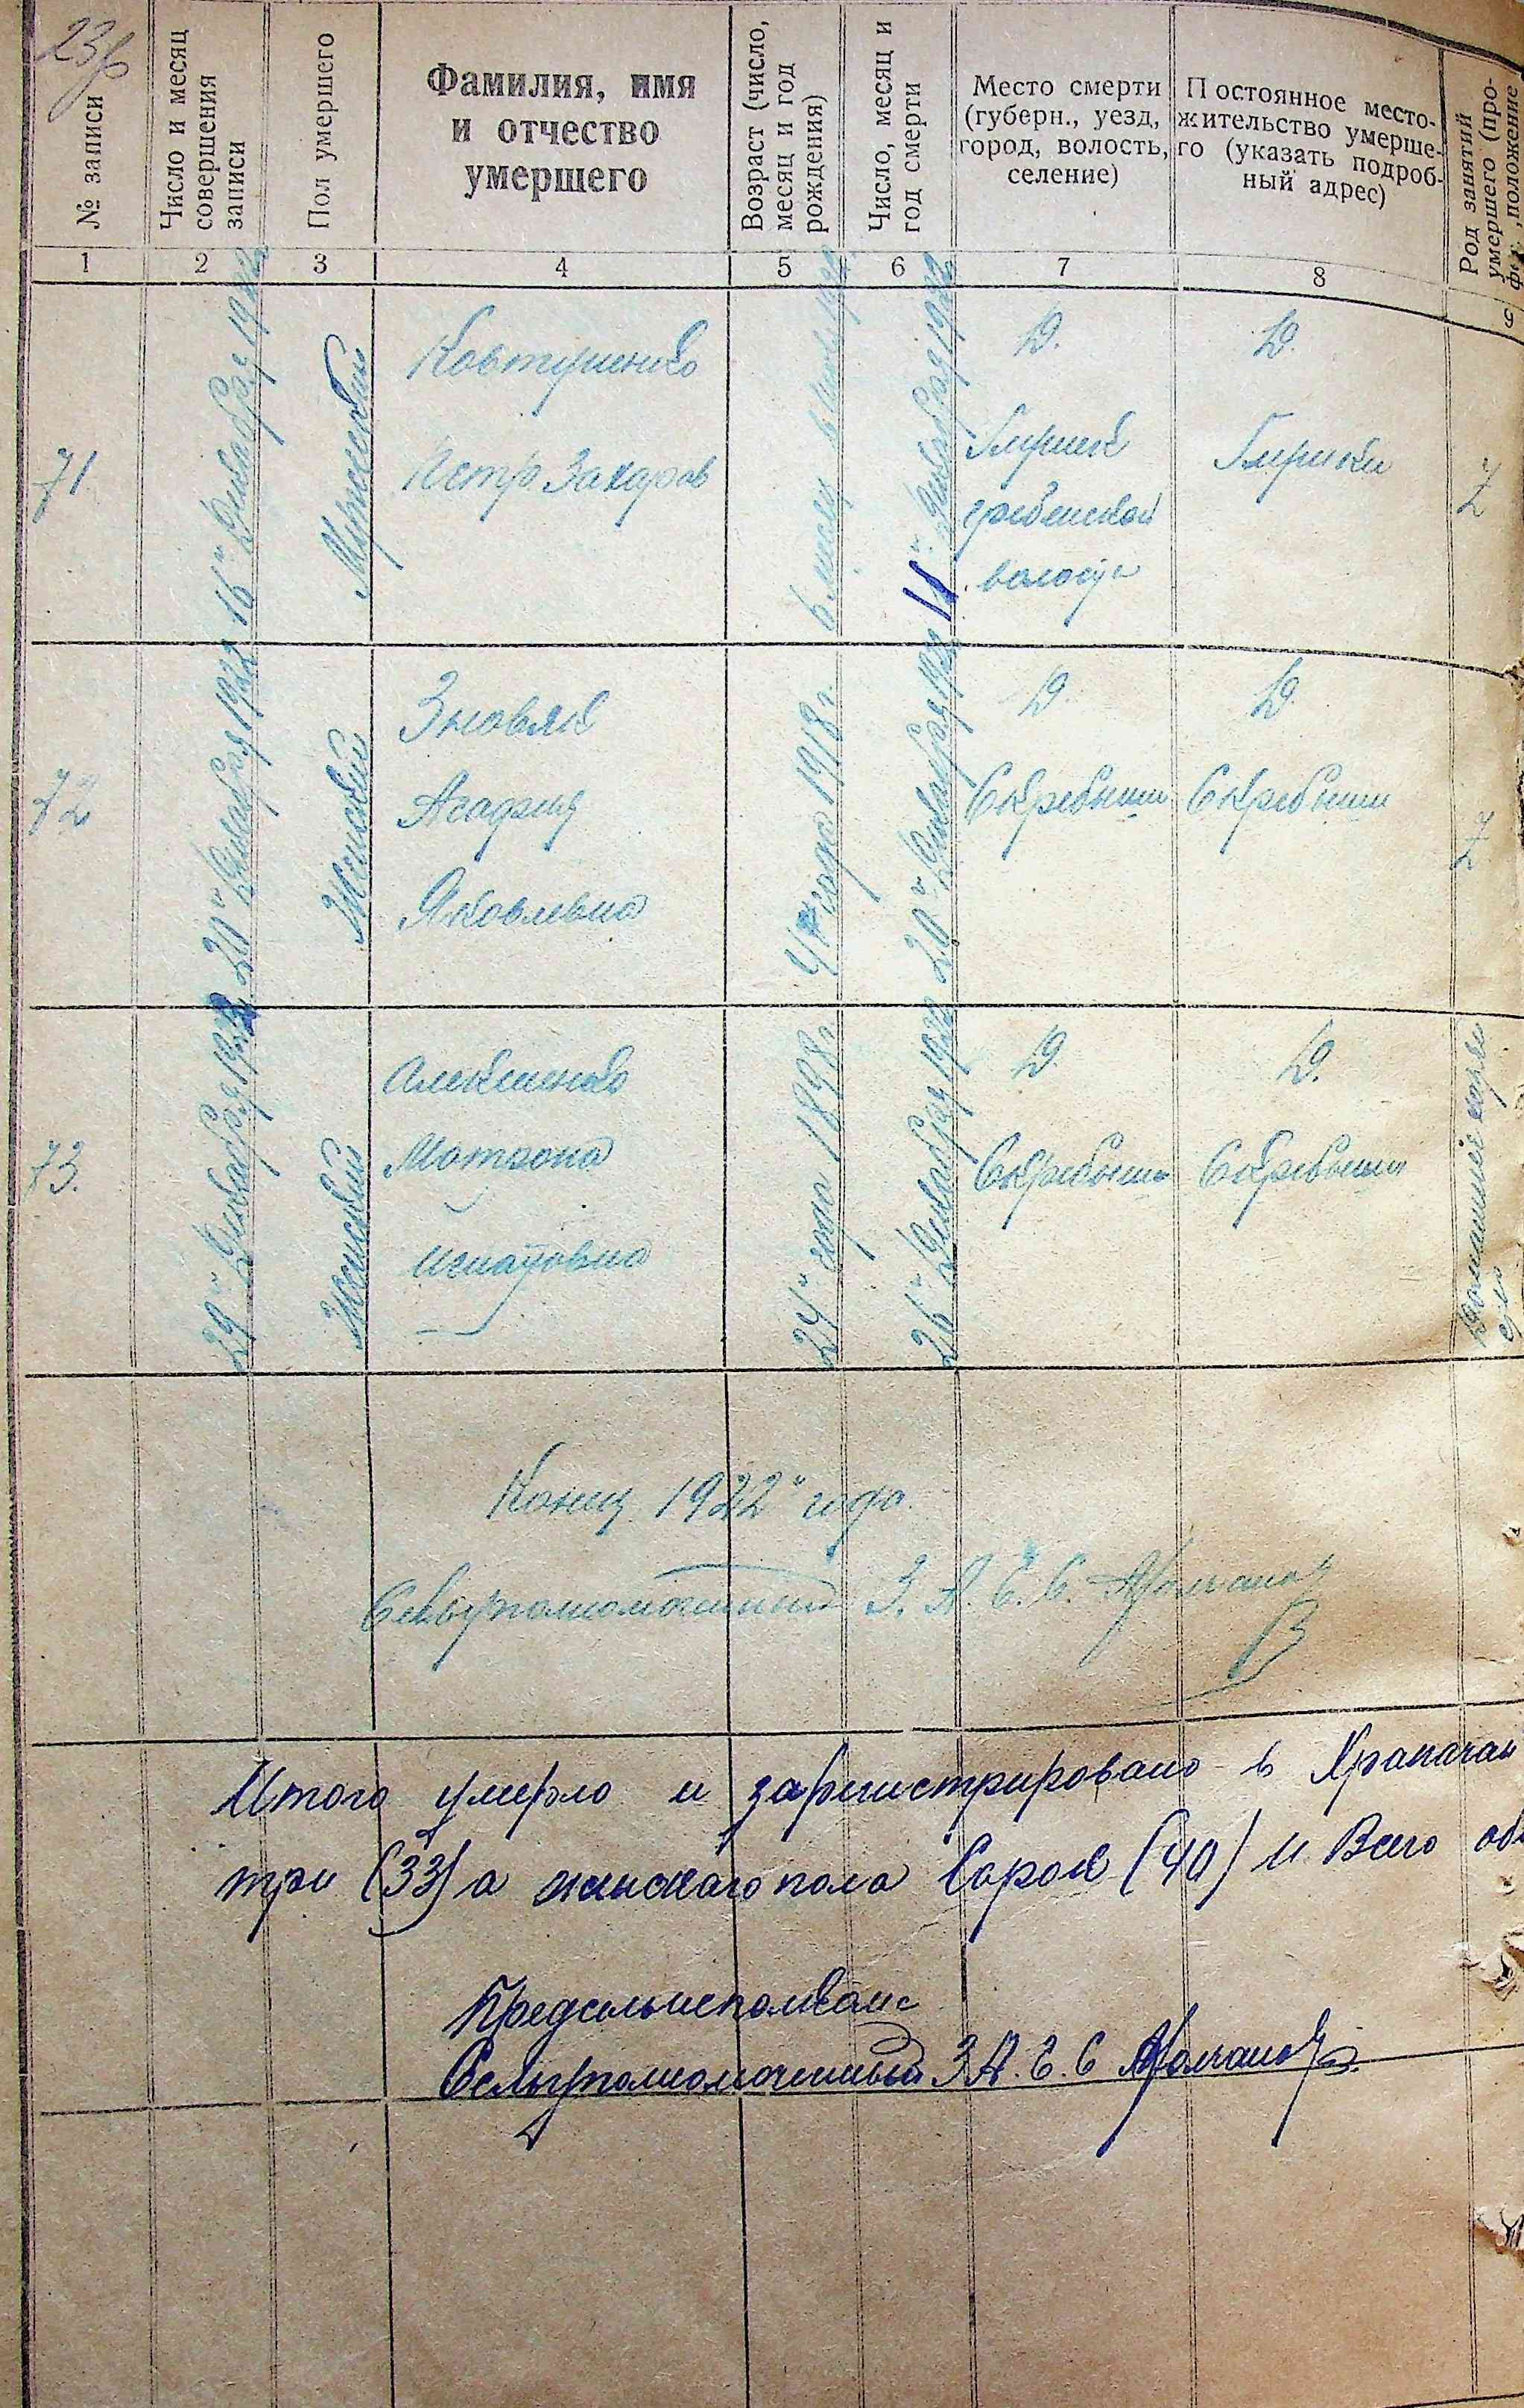 23
№ записи
Число и месяц совершения записи
Пол умершего
Фамилия, имя
и отчество
умершего
Возраст (число, месяц и год рождения)
Число, месяц и год смерти
Место смерти
(губерн., уезд,
город, волость,
селение)
Постоянное место-
жительство умерше-
го (указать подроб-
ный адрес)
Род занятий
умершего (про-
положение
1 2 3 4 5 6 7 8
71
16" Декабря 1922
Мужеский
Ковтушенко
Петр Захаров
6 месяц
11" Декабря 1922
Д.
гребенской
Д.
Гирики
72
20" Декабря 1922
Женский
Зновяк
Агафия
Яковлевна
4 года 1918 г.
20" Декабря 1922
Д.
Скребыши
Д.
Скребыши
73.
29" Декабря 1922
Женский
Алексиенко
Мотрона
Игнатовна
24" года 1898 г.
26" Декабря 1922
Д.
Скребыши
Д.
Скребыши
Конец 1922" года.
Сельуполномоченный З. А. Г. С.
Итого умерло и зарегистрировано в
три (33) а женскаго пола Сорок (40) и Всего об
Предсельисполкома
Сельуполномоченный З А. Г. С